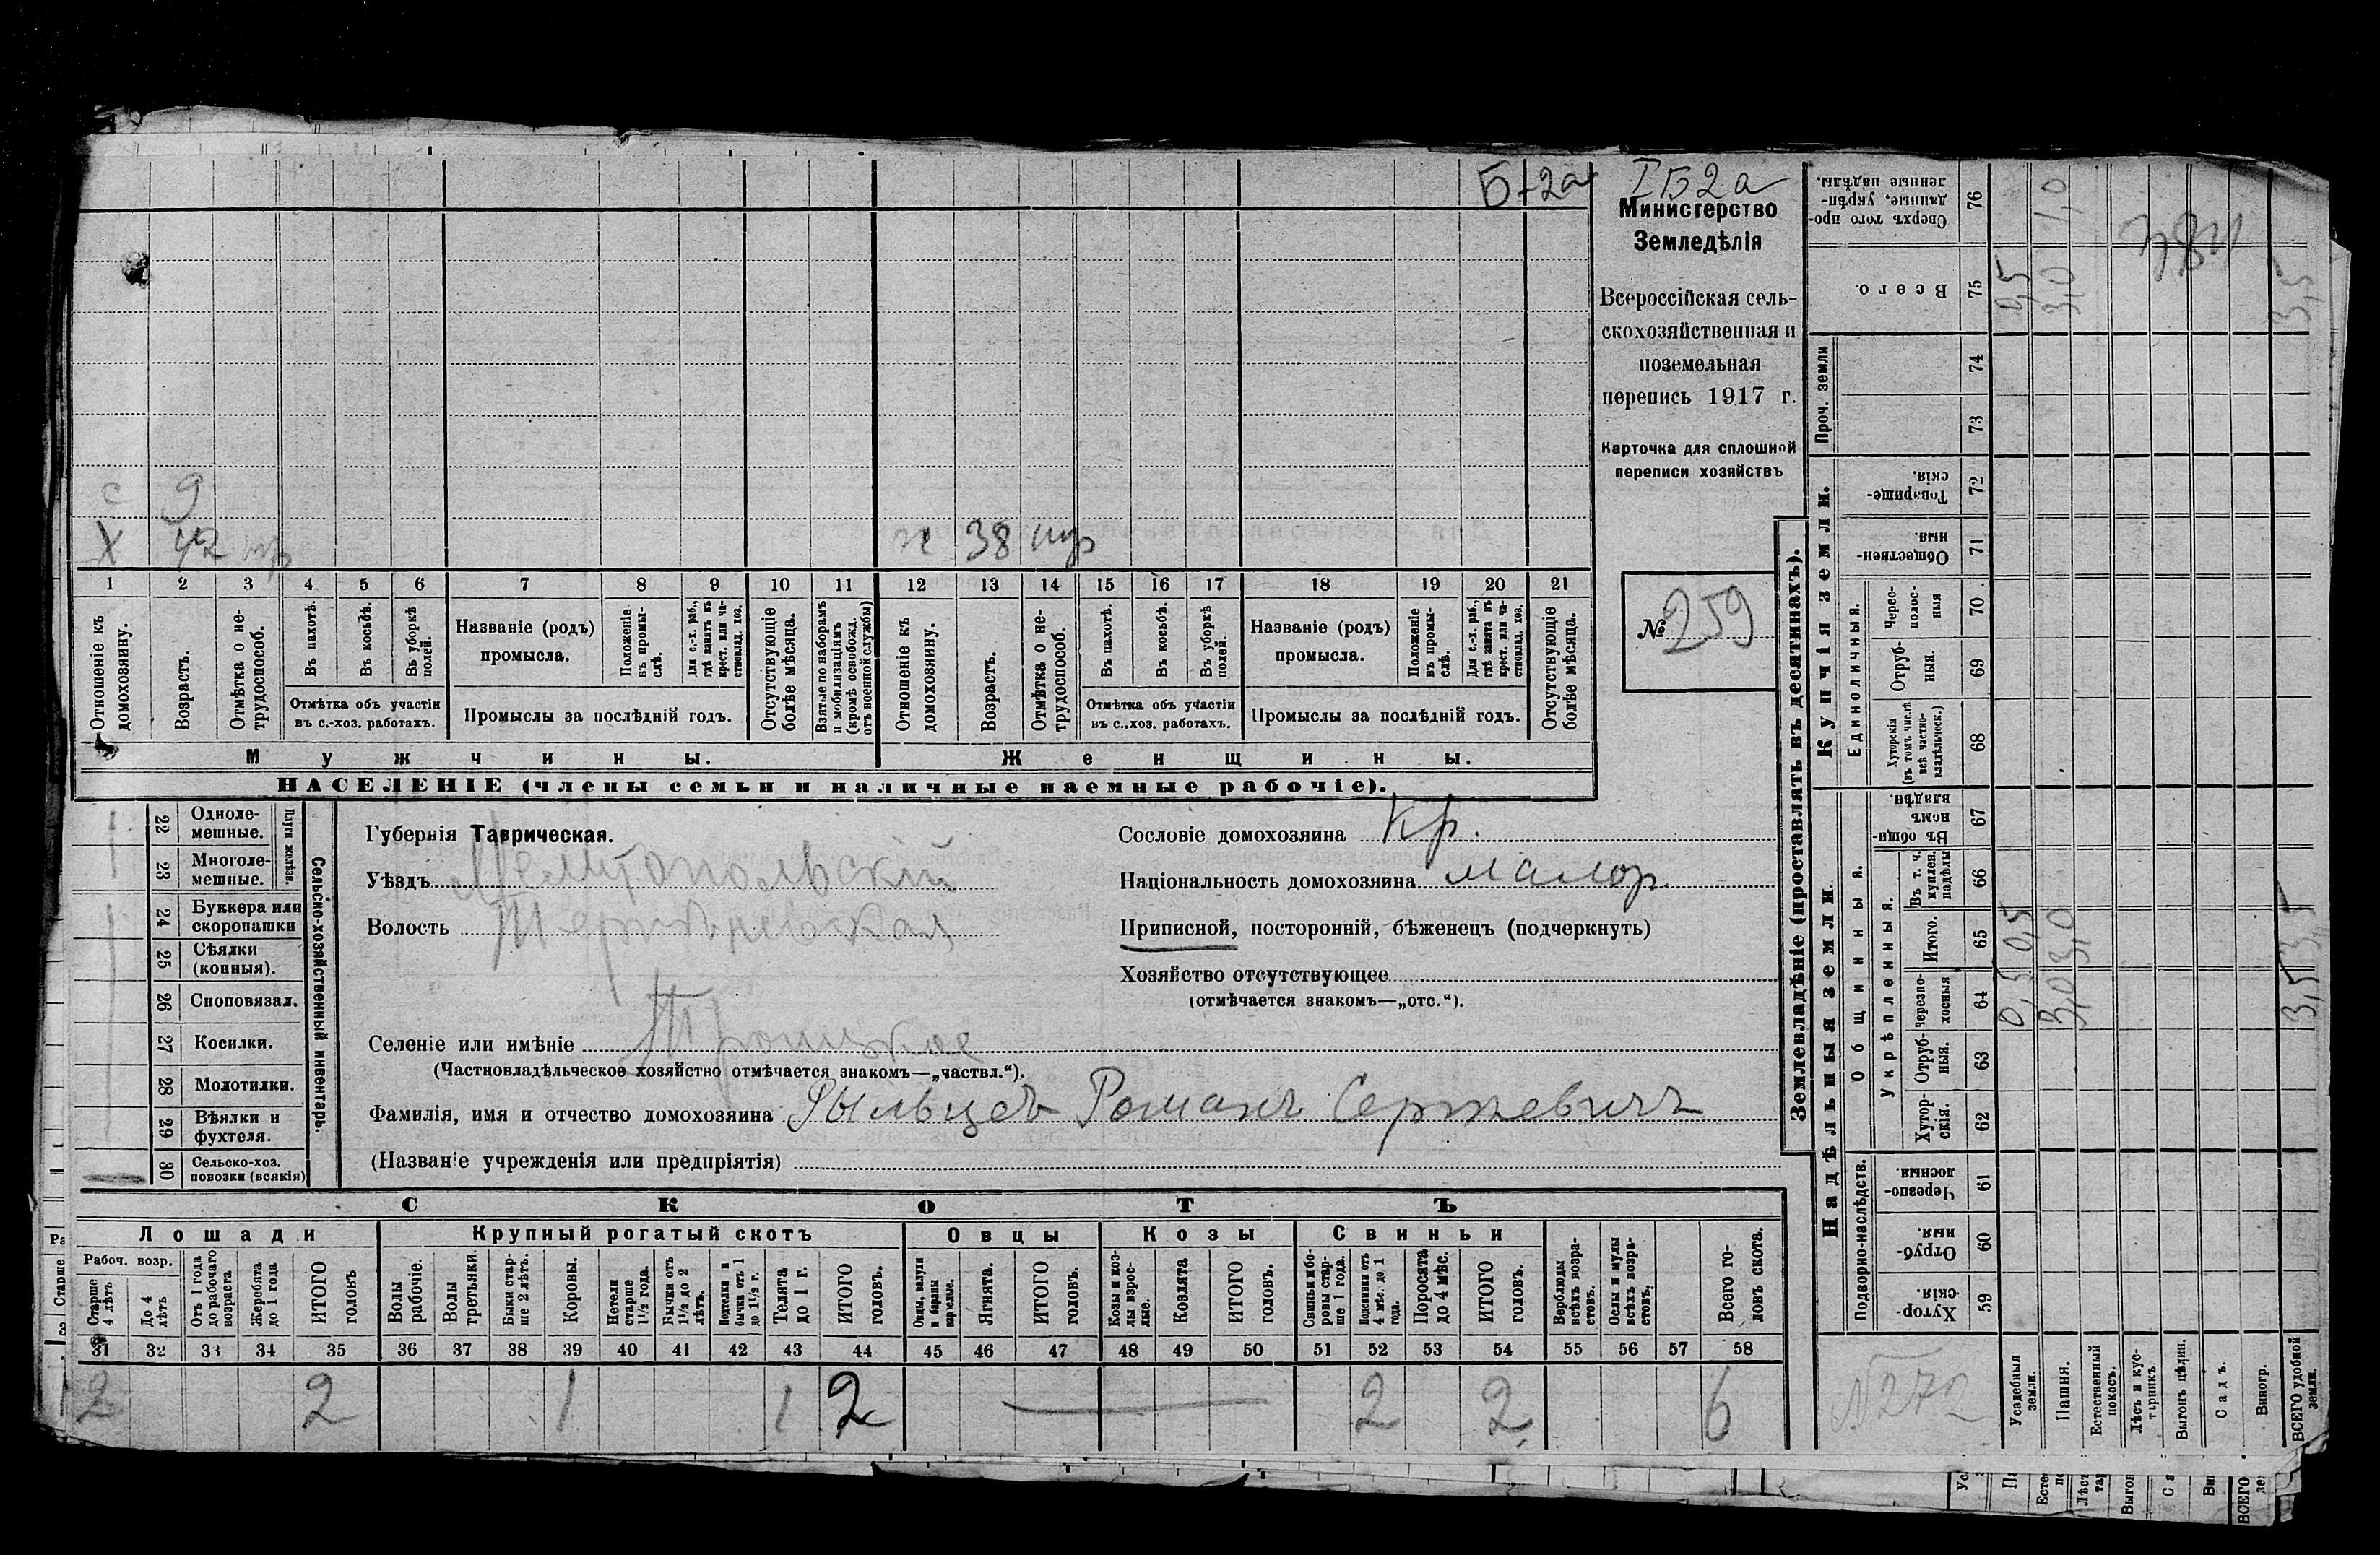 Б+2а
IБ2а
Министерство
Земледѣлія
Всероссійская сель-
скохозяйственная и
поземельная
перепись 1917 г.
Карточка для сплошной
переписи хозяйствъ
№ 259
с 9
х 42 пр
ж 38 пр
1 2 3 4 5 6 7 8 9 10 11 12 13 14 15 16 17 18 19 20 21
Отношеніе къ домохозяину.
Возрастъ.
Отмѣтка о не-трудоспособ.
Въ пахотѣ.
Въ косьбѣ.
Въ уборкѣ полей.
Отмѣтка объ участіи
въ с.-хоз. работахъ.
Названіе (родъ)
промысла.
Положеніе въ промы-слѣ.
Для с.-х. раб., гдѣ занятъ въ крест. или ча-стновлад. хоз.
Промыслы за послѣдній годъ.
Отсутствующіе болѣе мѣсяца.
Взятые по наборамъ и мобилизаціямъ (кромѣ освобожд. отъ военной службы)
Отношеніе къ домохозяину.
Возрастъ.
Отмѣтка о не-трудоспособ.
Въ пахотѣ.
Въ косьбѣ.
Въ уборкѣ полей.
Отмѣтка объ участіи
въ с.-хоз. работахъ.
Названіе (родъ)
промысла.
Положеніе въ промы-слѣ.
Для с.-х. раб., гдѣ занята въ крест. или ча-стновлад. хоз.
Промыслы за послѣдній годъ.
Отсутствующіе болѣе мѣсяца.
Мужчины.
Женщины.
НАСЕЛЕНІЕ (члены семьи и наличные наемные рабочіе).
Сельско-хозяйственный инвентарь.
Плуги желѣзн.
22 Одноле-мешные.
23 Многоле-мешные.
24 Буккера или скоропашки
25 Сѣялки (конныя).
26 Сноповязал.
27 Косилки.
28 Молотилки.
29 Вѣялки и фухтеля.
30 Сельско-хоз. повозки (всякія)
Губернія Таврическая.
Уѣздъ Мелитопольскій
Волость
Селеніе или имѣніе Троицкое
(Частновладѣльческое хозяйство отмѣчается знакомъ—„частвл.“).
Фамилія, имя и отчество домохозяина Рыльцевъ Романъ Сергѣевичъ
(Названіе учрежденія или предпріятія)
Сословіе домохозяина Кр.
Національность домохозяина малор.
Приписной, посторонній, бѣженецъ (подчеркнуть)
Хозяйство отсутствующее
(отмѣчается знакомъ—„отс.“).
СКОТЪ
Лошади
Крупный рогатый скотъ
Овцы
Козы
Свиньи
Рабоч. возр.
Старше 4 лѣтъ
До 4 лѣтъ
Отъ 1 года до рабочаго возраста
Жеребята до 1 года
ИТОГО головъ
Волы рабочіе.
Волы третьяки.
Быки стар-ше 2 лѣтъ.
Коровы.
Нетели старше 1½ года.
Бычки отъ 1½ до 2 лѣтъ.
Подтелки и бычки отъ 1 до 1½ г.
Телята до 1 г.
ИТОГО головъ.
Овцы, валухи и бараны взрослые.
Ягнята.
ИТОГО головъ.
Козы и коз-лы взрос-лые.
Козлята
ИТОГО головъ.
Свиньи и бо-ровы стар-ше 1 года.
Подсвинки отъ 4 мѣс. до 1 года.
Поросята до 4 мѣс.
ИТОГО головъ.
Верблюды всѣхъ возра-стовъ.
Ослы и мулы всѣхъ возра-стовъ.
Всего го-ловъ скота.
31 32 33 34 35 36 37 38 39 40 41 42 43 44 45 46 47 48 49 50 51 52 53 54 55 56 57 58
2 2 1 1 2 2 2 6
Землевладѣніе (проставлять въ десятинахъ).
Надѣльныя земли.
Купчія земли.
Проч. земли
Подворно-наслѣдств.
Общинныя.
Укрѣпленныя.
Единоличныя.
59 Хутор-скія.
60 Отруб-ныя.
61 Черезпо-лосныя.
62 Хутор-скія.
63 Отруб-ныя.
64 Черезпо-лосныя
65 Итого.
66 Въ т. ч. куплен. надѣлы
67 Въ общин-номъ владѣн.
68 Хуторскія (въ томъ числѣ всѣ частно-владѣльческ.)
69 Отруб-ныя.
70 Черес-полос-ныя
71 Обществен-ныя.
72 Товарище-скія.
73
74
75 Всего.
76 Сверхъ того про-данные, укрѣп-ленные надѣлы.
№ 272
Усадебныя земли. 0,5 0,5 0,5
Пашня. 3,0 3,0 3,0 1,0
Естественный покосъ.
Лѣсъ и кус-тарникъ.
Выгонъ цѣлин.
Садъ.
Виногр.
ВСЕГО удобной земли. 3,5 3,5 3,5